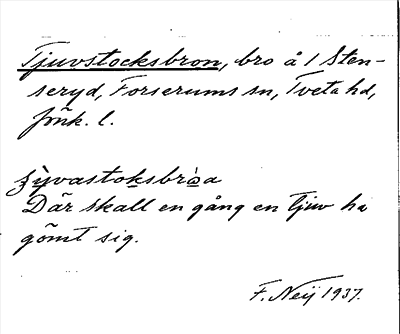 Tjuvstocksbron, bro å 1 Sten-
seryd, Forserums sn, Tveta hd,
Jönk. l.
Där skall en gång en tjuv ha
gömt sig.
F. Neij 1937.